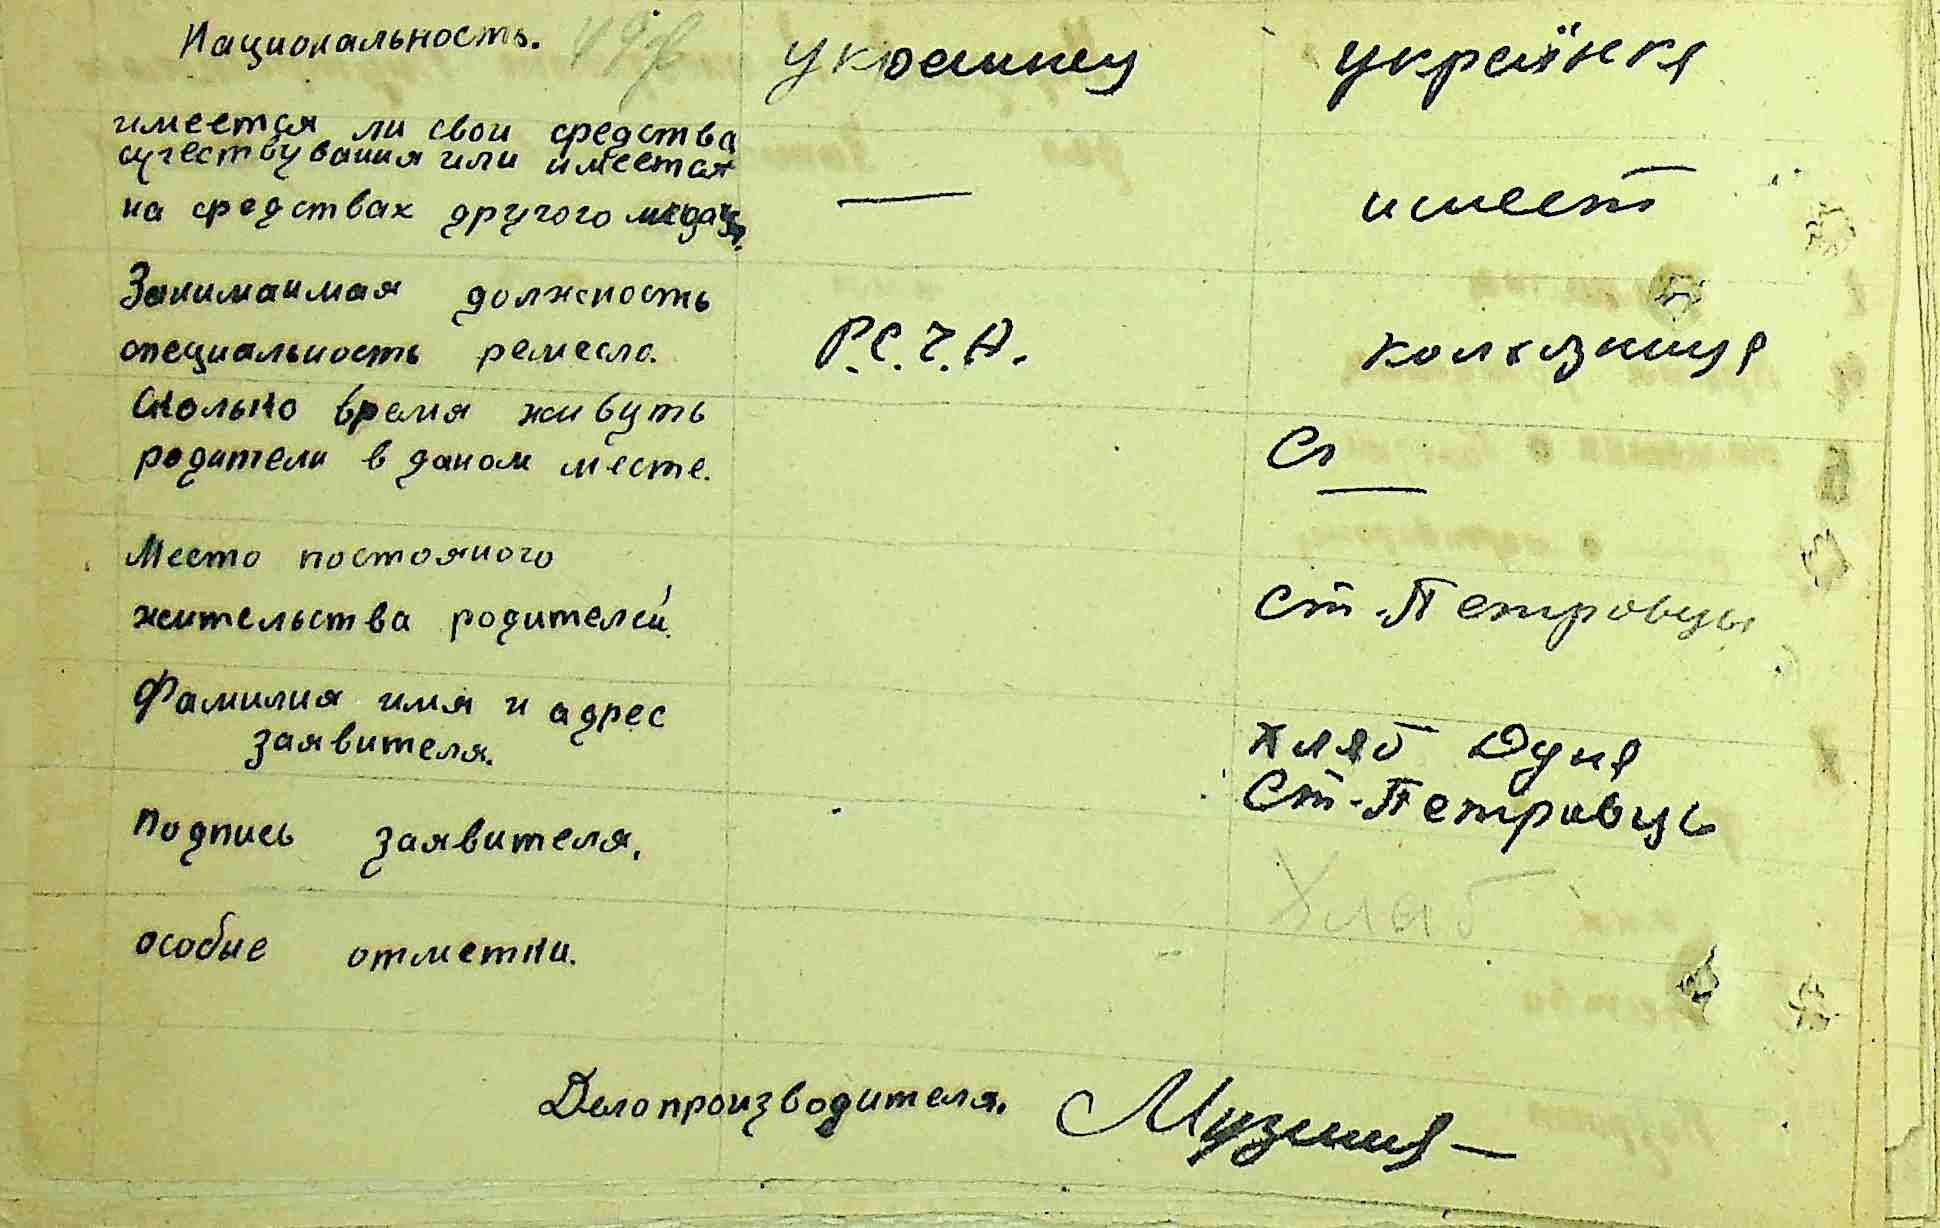 Национальность. украинец украïнка
имеется ли свои средства
сучествувания или имеется
на средствах другого — имеет
Занимаимая должность
специальность ремесло. Р.С.Ч.А. колхозница
Сколько время живуть
родители в даном месте. Ст
Место постояного
жительства родителей. Ст-Петровцы
Фамилия имя и адрес Хляб Дуня
заявителя. Ст-Петровцы
подпись заявителя. Хляб
особые отметки.
Делопроизводителя.